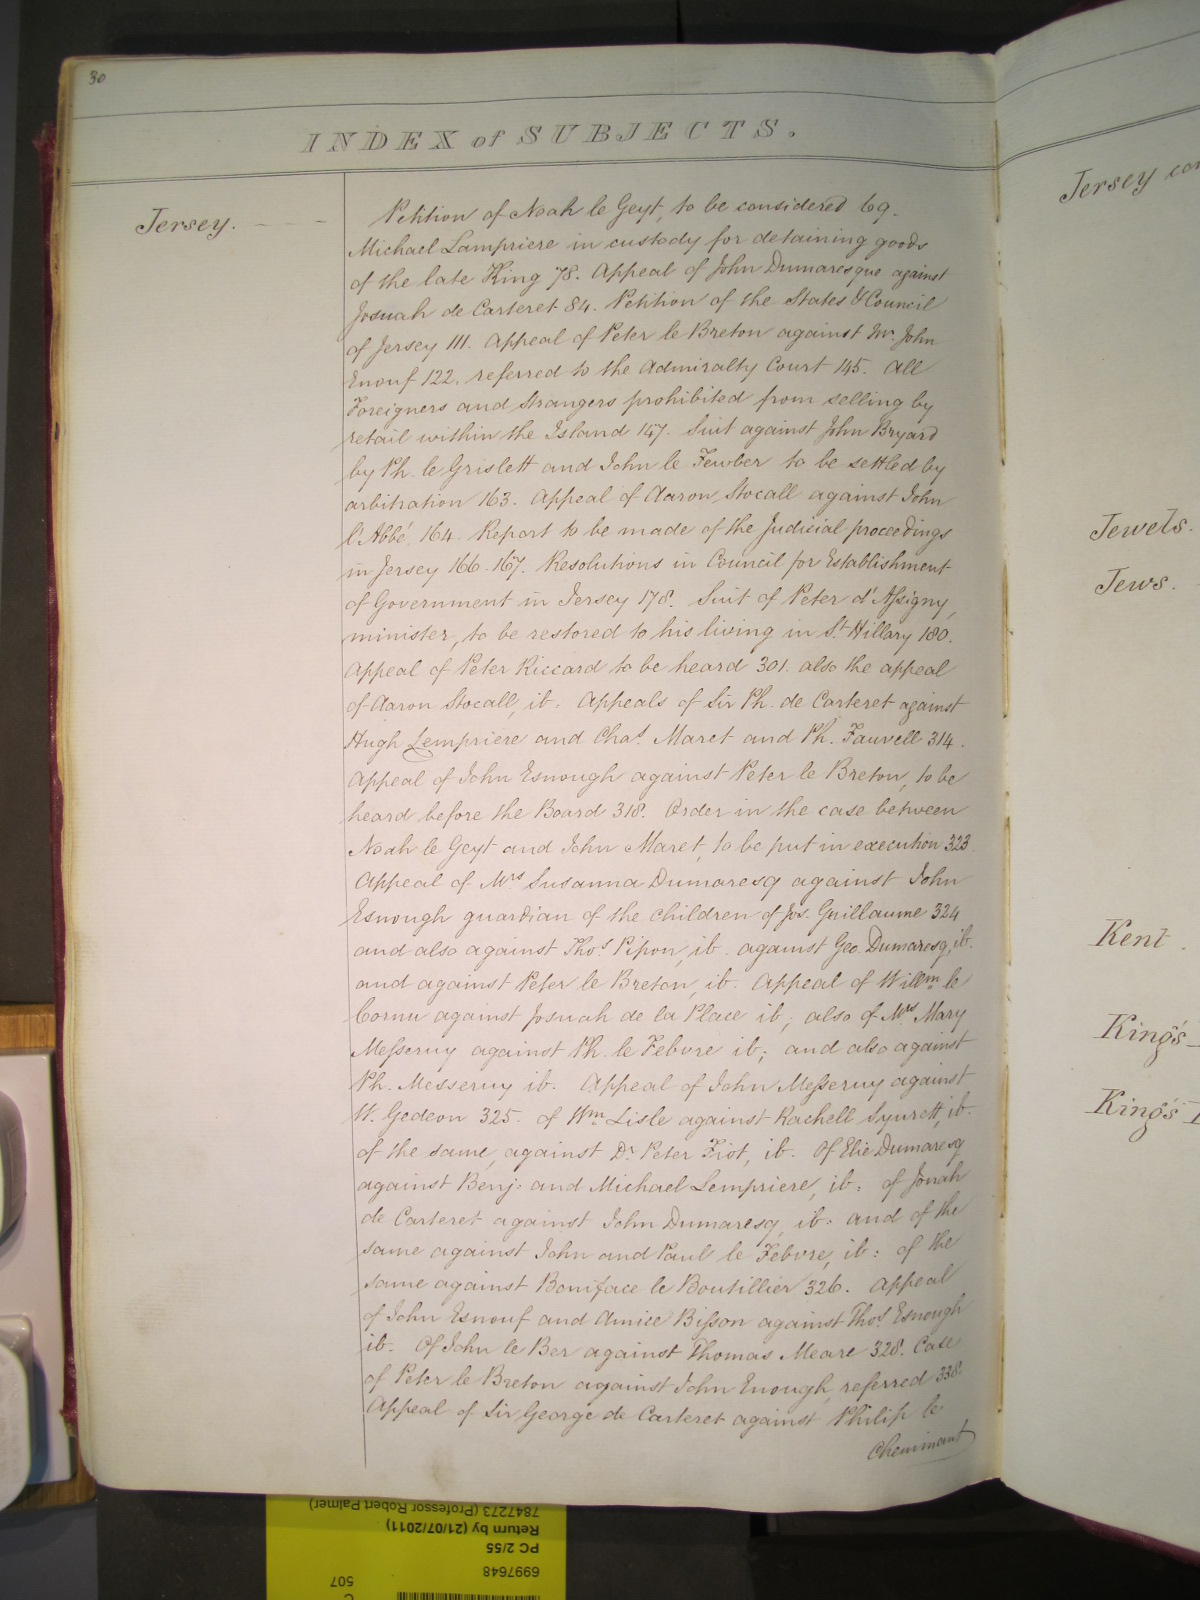 30
INDEX of SUBJECTS.
Jersey.
Petition of Noah le Geyt, to be considered 69.
Michael Lampriere in custody for detaining goods
of the late King 78. Appeal of John Dumaresque against
Josuah de Carteret 84. Petition of the States & Council
of Jersey 111. Appeal of Peter le Breton against Mr. John
Enouf 122. referred to the Admiralty Court 145. All
Foreigners and Strangers prohibited from selling by
retail within the Island 147. Suit against John Bryard
by Ph. le Grislett and John le Fewber to be settled by
arbitration 163. Appeal of Aaron Stocall against John
l'Abbé 164. Report to be made of the Judicial proceedings
in Jersey 166. 167. Resolutions in Council for Establishment
of Government in Jersey 178. Suit of Peter d'Assigny,
minister, to be restored to his living in St. Hillary 180.
Appeal of Peter Riccard to be heard 301. also the appeal
of Aaron Stocall, ib: Appeals of Sir Ph. de Carteret against
Hugh Lempriere and Chas. Maret and Ph. Fauvell 314.
Appeal of John Esnough against Peter le Breton, to be
heard before the Board 318. Order in the case between
Noah le Geyt and John Maret, to be put in execution 323
Appeal of Mrs Susanna Dumaresq against John
Esnough guardian of the children of Jos. Guillaume 324
and also against Thos. Pipon, ib. against Geo. Dumaresq, ib.
and against Peter le Breton, ib. Appeal of Willm. le
Cornu against Josuah de la Place ib; also of Mrs Mary
Messeruy against Ph. le Febvre ib; and also against
Ph. Messeruy ib. Appeal of John Messeruy against
W. Gedeon 325. of Wm. Lisle against Rachell Syvrett, ib.
of the same, against Dr. Peter Fiot, ib. Of Elie Dumaresq
against Benj: and Michael Lempriere, ib: of Jonah
de Carteret against John Dumaresq, ib: and of the
same against John and Paul le Febvre, ib: of the
same against Boniface le Boutillier 326. Appeal
of John Esnouf and Amice Bisson against Thos. Esnough
ib. Of John le Ber against Thomas Meare 328. Case
of Peter le Breton against John Enough, referred 338.
Appeal of Sir George de Carteret against Philip le
Cheminant
Jersey
Jewels.
Jews.
Kent.
King's
King's
7847273 (Professor Robert Palmer)
Return by (21/07/2011)
PC 2/55
6997648
507